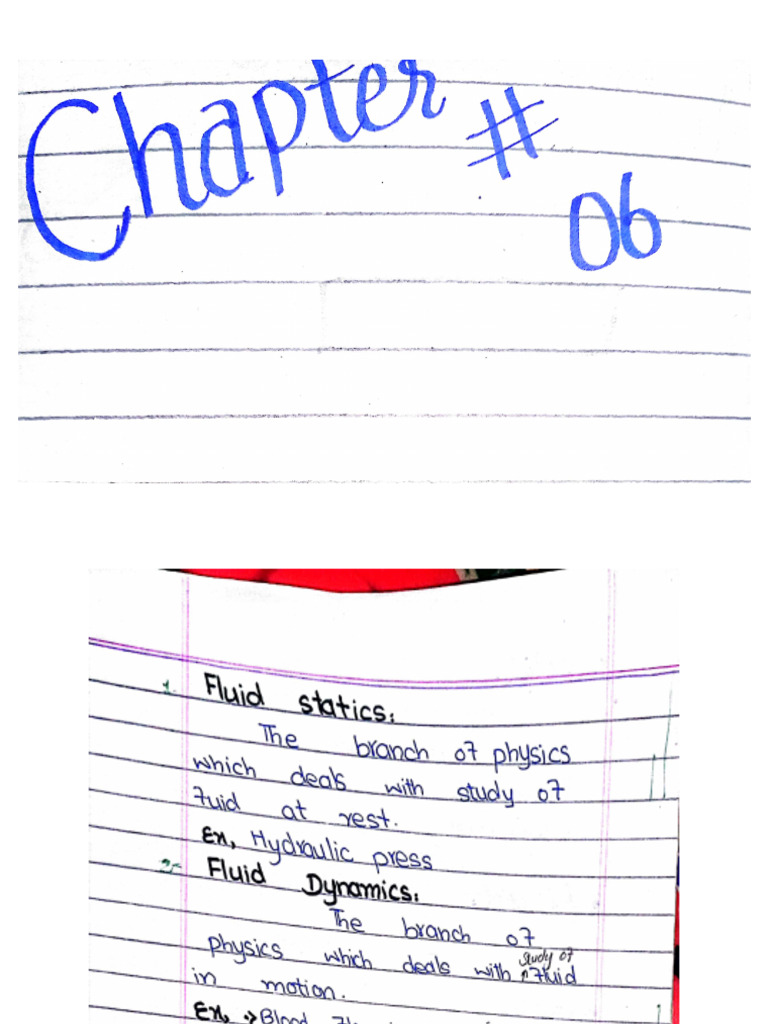 Chapter #
06
1. Fluid statics:
The branch of physics
which deals with study of
fuid at rest.
Ex, Hydraulic press
2- Fluid Dynamics:
The branch of
physics which deals with study of fluid
in motion.
Ex, → Blood